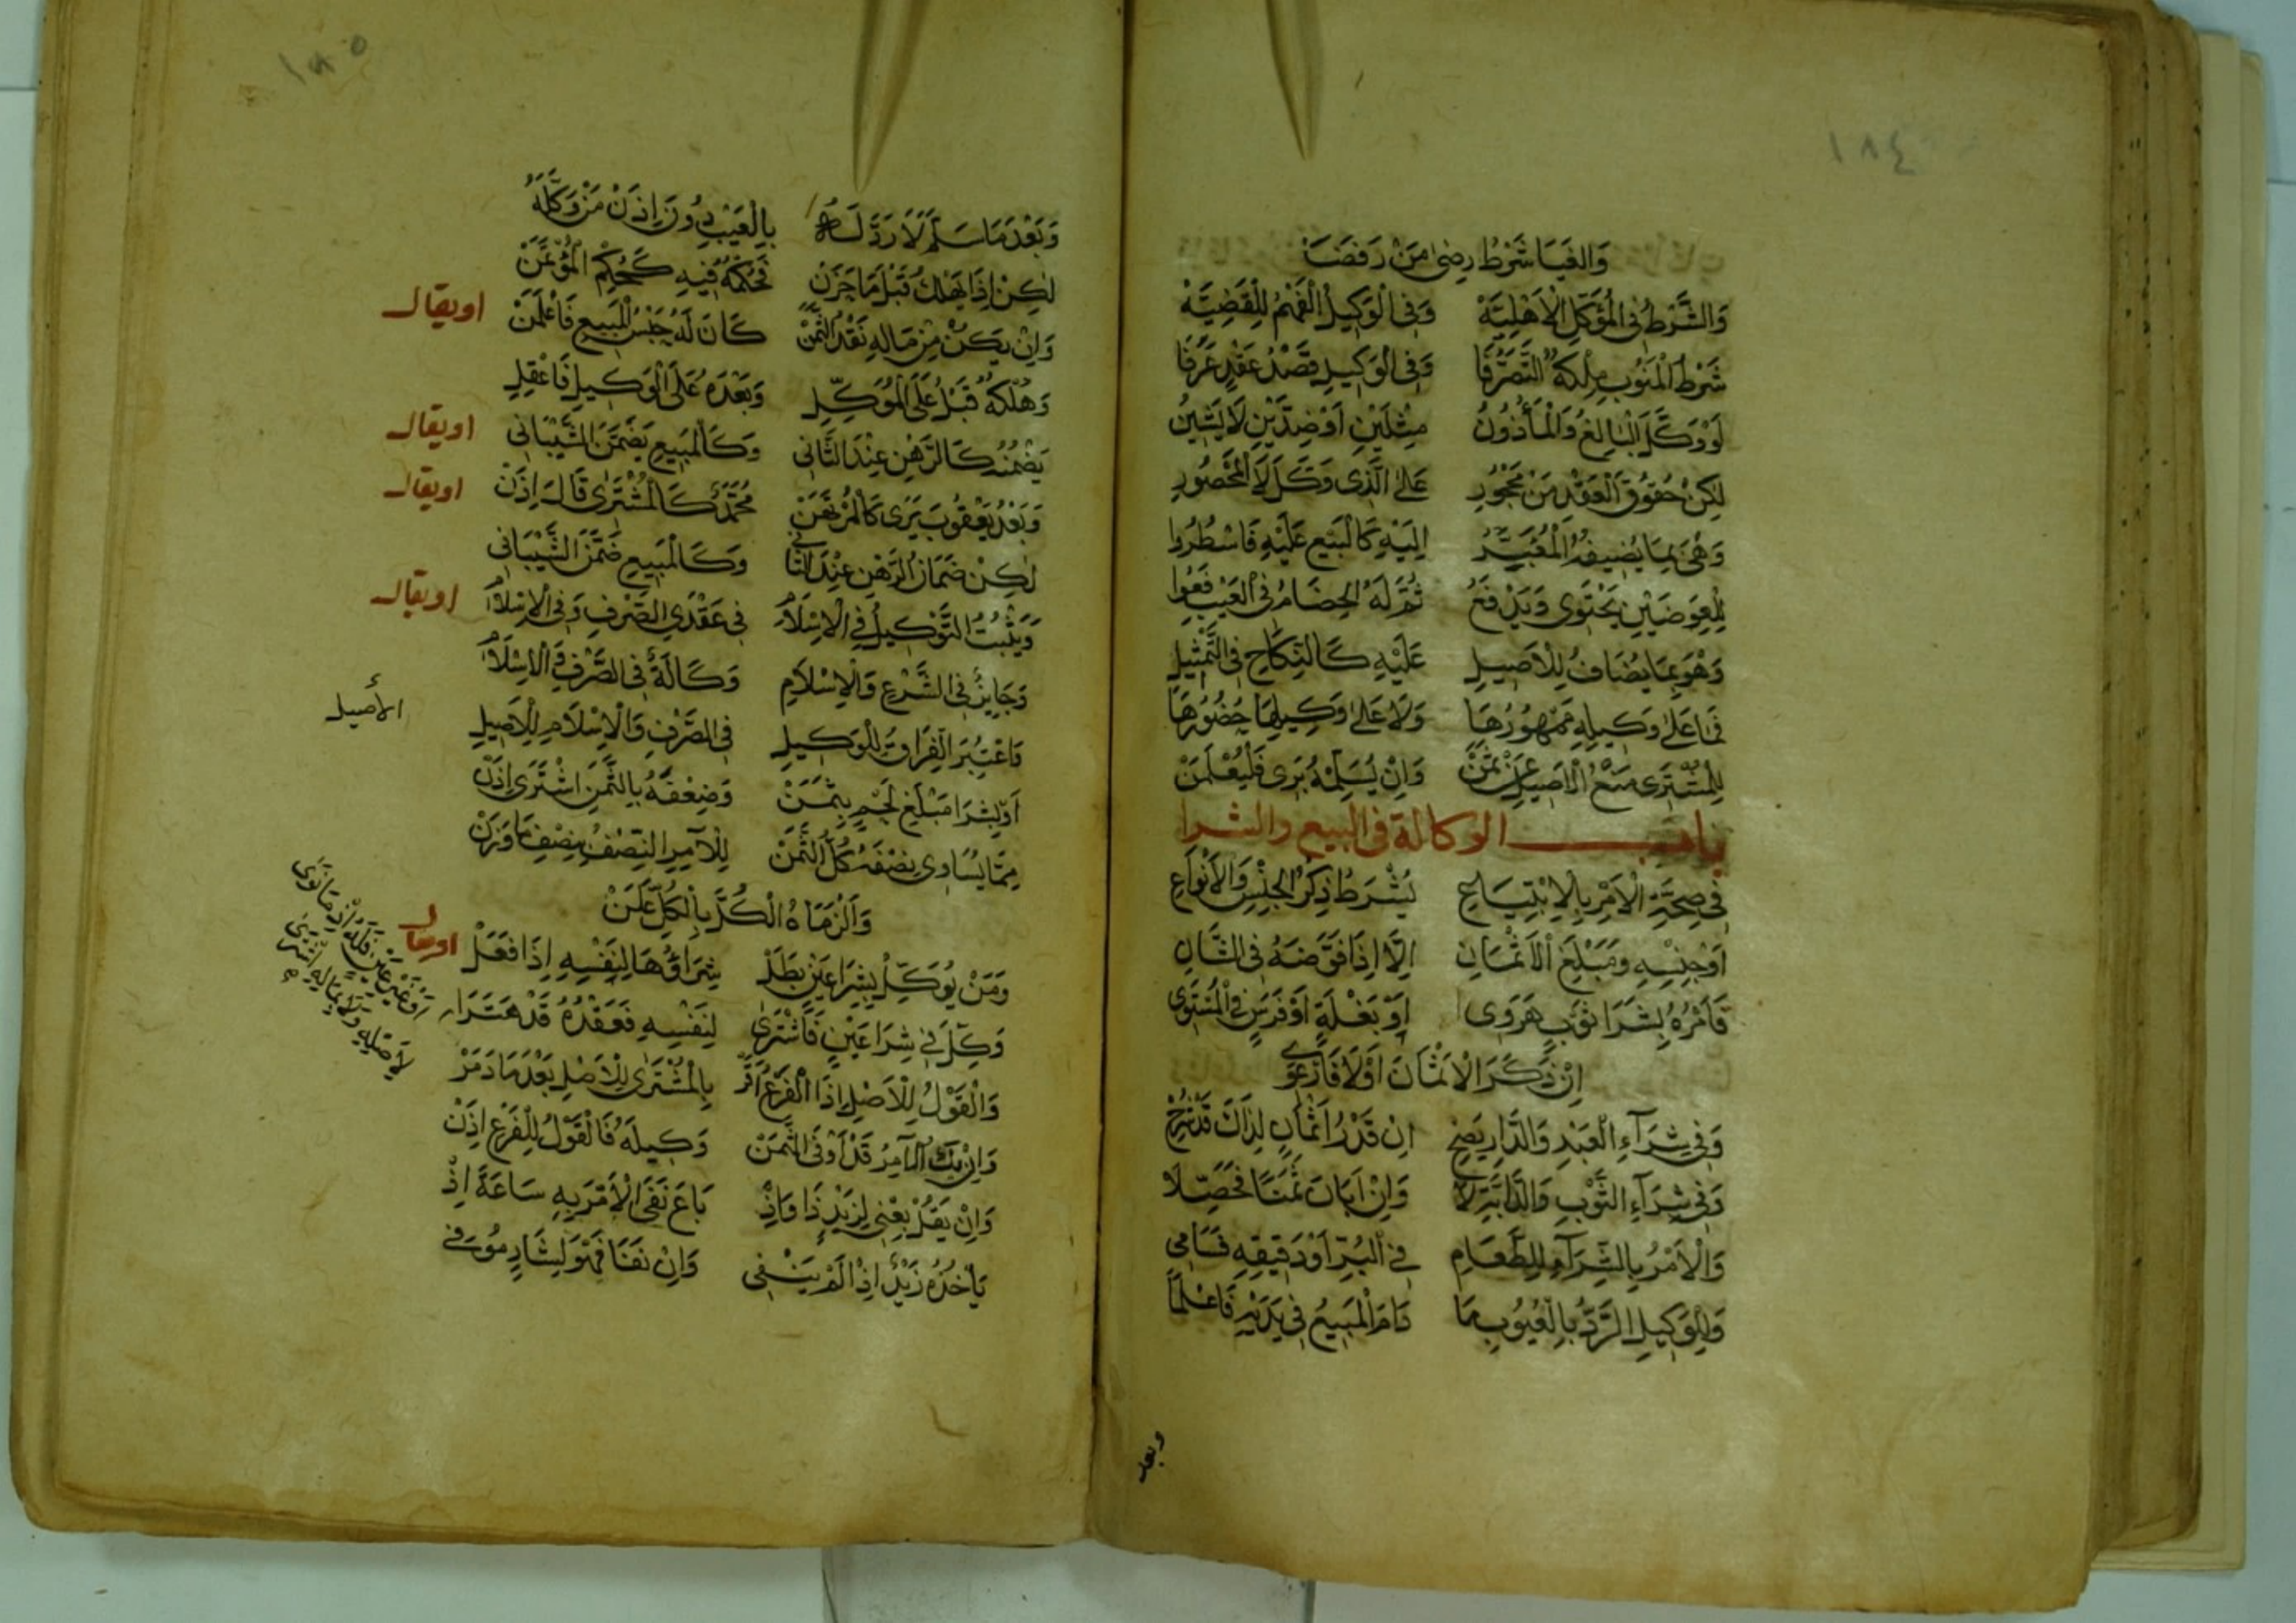 ١٨٤
وَالغَيَا شَرْطُ رِضَى مَنْ رَفَضَا
وَالشَّرْطُ فِي الْمُؤَكِّلِ الْأَهْلِيَّهْ وَفِي الْوَكِيلِ الْفَهْمُ لِلْقَضِيَّهْ
شَرْطُ الْمَنُوبِ مِلْكُهُ التَّصَرُّفَا وَفِي الْوَكِيلِ قَصْدُ عَقْدٍ عَرَفَا
لَوْ وَكَّلَ الْبَالِغُ وَالْمَأْذُونُ مِثْلَيْنِ أَوْ ضِدَّيْنِ لَا يَشِينُ
لٰكِنْ حُقُوقَ الْعَقْدِ مِنْ مَحْجُورِ عَلَى الَّذِي وَكَّلَ لَا الْمَحْصُورِ
وَهْيَ بِمَا يُضِيفُهُ الْمُعَبِّرُ إِلَيْهِ كَالْبَيْعِ عَلَيْهِ فَاسْطُرُوا
لِلْعِوَضَيْنِ يَحْتَوِي وَيَدْفَعُ ثُمَّ لَهُ الْخِصَامُ فِي الْعَيْبِ فَعُوا
وَهْوَ بِمَا يُضَافُ لِلْأَصِيلِ عَلَيْهِ كَالنِّكَاحِ فِي التَّمْثِيلِ
فَمَا عَلَى وَكِيلِهِ مَمْهُورُهَا وَلَا عَلَى وَكِيلِهَا حُضُورُهَا
لِلْمُشْتَرِي مَنْعُ الْأَصِيلِ عَنْ ثَمَنْ وَإِنْ يُسَلِّمْهُ بَرِي فَلْيُعْلَمَنْ
بـــاب الوكالة في البيع والشرا
فِي صِحَّةِ الْأَمْرِ بِالِابْتِيَاعِ يُشْرَطُ ذِكْرُ الْجِنْسِ وَالْأَنْوَاعِ
أَوْ جِنْسِهِ وَمَبْلَغِ الْأَثْمَانِ إِلَّا إِذَا فَوَّضَهُ فِي الشَّانِ
فَأَمْرُهُ بِشِرَا ثَوْبٍ هَرَوِي أَوْ بَغْلَةٍ أَوْ فَرَسٍ فِي الْمُسْتَوِي
إِنْ ذَكَرَ الْأَثْمَانَ أَوْ لَا
وَفِي شِرَآءِ الْعَبْدِ وَالدَّارِ يَصِحْ إِنْ قَدْرُ أَثْمَانٍ لِذَاكَ قَدْ شُرِحْ
وَفِي شِرَآءِ الثَّوْبِ وَالدَّابَّةِ لَا وَإِنْ أَبَانَ ثَمَنًا فَحَصِّلَا
وَالْأَمْرُ بِالشِّرَآءِ لِلطَّعَامِ فِي الْبُرِّ أَوْ دَقِيقِهِ
وَلِلْوَكِيلِ الرَّدُّ بِالْعُيُوبِ مَا دَامَ الْمَبِيعُ فِي يَدَيْهِ فَاعْلَمَا
وبعد
١٨٥
وَبَعْدَمَا سَلَّمَ لَا رَدَّ لَهُ بِالْعَيْبِ دُونَ إِذْنِ مَنْ وَكَّلَهُ
لٰكِنْ إِذَا يَهْلِكُ قَبْلَمَا خَزَنْ فَحُكْمُهُ فِيهِ كَحُكْمِ الْمُؤْتَمَنْ
وَإِنْ يَكُنْ مِنْ مَالِهِ نَقْدُ الثَّمَنْ كَانَ لَهُ حَبْسُ الْمَبِيعِ فَاعْلَمَنْ
او يقال
وَهُلْكُهُ قَبْلُ عَلَى الْمُوَكِّلِ وَبَعْدَهُ عَلَى الْوَكِيلِ فَاعْقِلِ
يَضْمَنُهُ كَالرَّهْنِ عِنْدَ الثَّانِي وَكَالْمَبِيعِ يَضْمَنُ الشَّيْبَانِي
او يقال
وَبَعْدُ يَعْقُوبَ يَرَى كَالْمُرْتَهَنْ مُحَمَّدٌ كَالْمُشْتَرَى قَالَ إِذَنْ
او يقال
لٰكِنْ ضَمَانُ الرَّهْنِ عِنْدَ الثَّانِي وَكَالْمَبِيعِ ضَمَّنَ الشَّيْبَانِي
وَيَثْبُتُ التَّوْكِيلُ فِي الْإِسْلَامِ فِي عَقْدَيِ الصَّرْفِ وَفِي الْإِسْلَامِ
او يقال
وَجَائِزٌ فِي الشَّرْعِ وَالْإِسْلَامِ وَكَالَةٌ فِي الصَّرْفِ وَالْإِسْلَامِ
فَاعْتُبِرَ الْفِرَاقُ لِلْوَكِيلِ فِي الصَّرْفِ وَالْإِسْلَامِ لِلْأَصِيلِ
الأصيل
أَوْ لِشِرَا مَبْلَغِ لَحْمٍ بِثَمَنْ وَضِعْفَهُ بِالثَّمَنِ اشْتَرَى إِذَنْ
مِمَّا يُسَاوِي نِصْفَهُ كُلُّ الثَّمَنْ لِلْآمِرِ النِّصْفُ بِنِصْفِ مَا وَزَنْ
وَأَلْزَمَاهُ الْكُلَّ بِالْكُلِّ عَلَنْ
وَمَنْ يُوَكِّلْ بِشِرَا عَيْنٍ بَطَلْ شِرَاؤُهَا لِنَفْسِهِ إِذَا فَعَلْ
او يقال
وَكِّلَ فِي شِرَاءِ عَيْنٍ فَاشْتَرَى لِنَفْسِهِ فَعَقْدُهُ قَدْ
أَوْ غَيْرِ عَيْنٍ فَلَهُ إِذْ مَا نَوَى
وَالْقَوْلُ لِلْأَصْلِ إِذَا الْفَرْعُ أَقَرّْ بِالْمُشْتَرَى لِلْأَصْلِ بَعْدَمَا
وَإِنْ يَكُ الْآمِرُ قَدْ أَوْفَى الثَّمَنْ وَكِيلَهُ فَالْقَوْلُ لِلْفَرْعِ إِذَنْ
وَإِنْ يَقُلْ بِعْنِي لِزَيْدٍ ذَا بَاعَ نَفَى الْأَمْرَ بِهِ سَاعَةَ إِذْ
يَأْخُذُهُ زَيْدٌ إِذَا لَمْ يَنْتَفِي وَإِنْ نَفَى فَهْوَ لِشَارٍ مُوْفِي